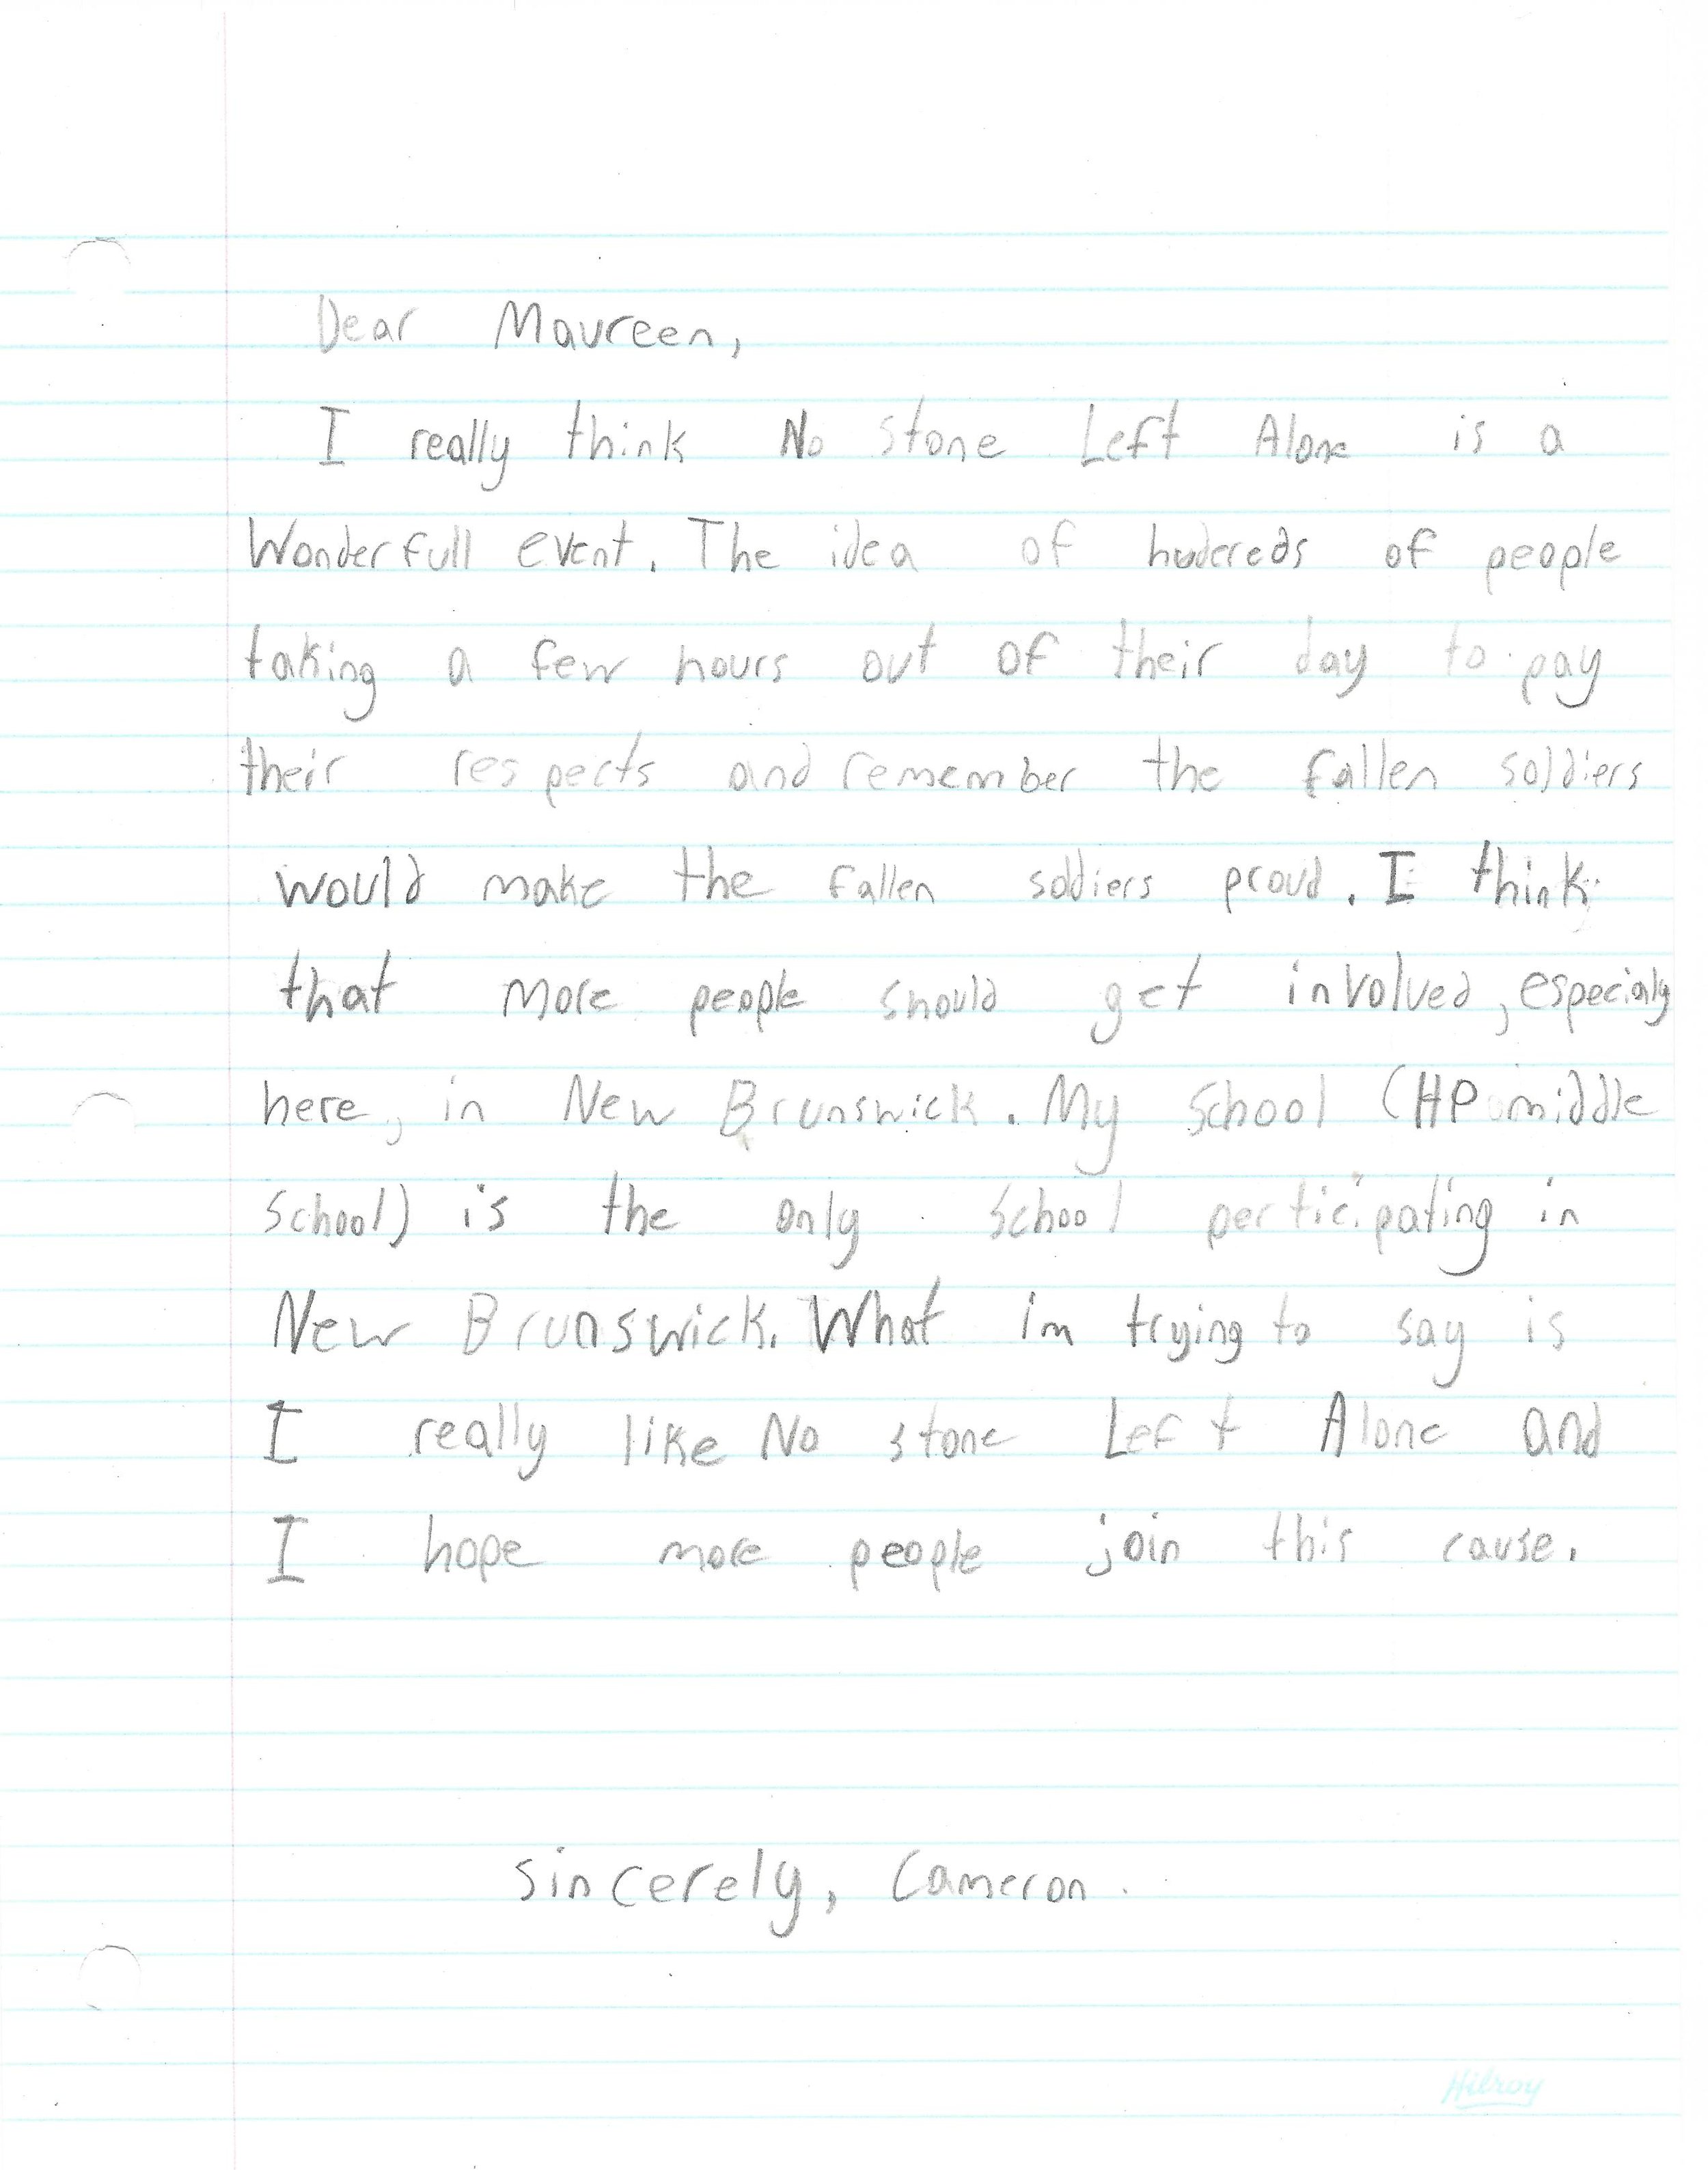 Dear Maureen,
I really think No stone Left Alone is a
Wonderfull event. The idea of hudereds of people
taking a few hours out of their day to pay
their respects and remember the fallen soldiers
would make the fallen soldiers proud. I think
that more people should get involved, especialy
here, in New Brunswick. My School (HP middle
School) is the only school perticipating in
New Brunswick. What im trying to say is
I really like No stone Left Alone and
I hope more people join this cause.
sincerely, Cameron.
Hilroy